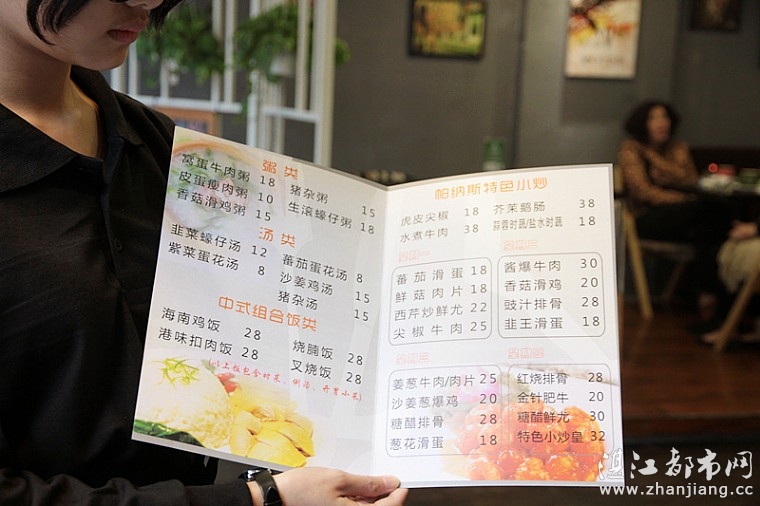 粥类
窝蛋牛肉粥 18
皮蛋瘦肉粥 10
香菇滑鸡粥 15
猪杂粥 15
生滚蠔仔粥 18
汤类
韭菜蠔仔汤 12
紫菜蛋花汤 8
蕃茄蛋花汤 8
沙姜鸡汤 15
猪杂汤 15
中式组合饭类
海南鸡饭 28
港味扣肉饭 28
烧腩饭 28
叉烧饭 28
帕纳斯特色小炒
虎皮尖椒 18
水煮牛肉 38
芥茉鹅肠 38
蒜蓉时蔬/盐水时蔬 18
蕃茄滑蛋 18
鲜菇肉片 18
西芹炒鲜尤 22
尖椒牛肉 25
酱爆牛肉 30
香菇滑鸡 20
豉汁排骨 28
韭王滑蛋 18
姜葱牛肉/肉片 25
沙姜葱爆鸡 20
糖醋排骨 28
葱花滑蛋 18
红烧排骨 28
金针肥牛 20
糖醋鲜尤 30
特色小炒皇 32
湛江都市网
www.zhanjiang.cc